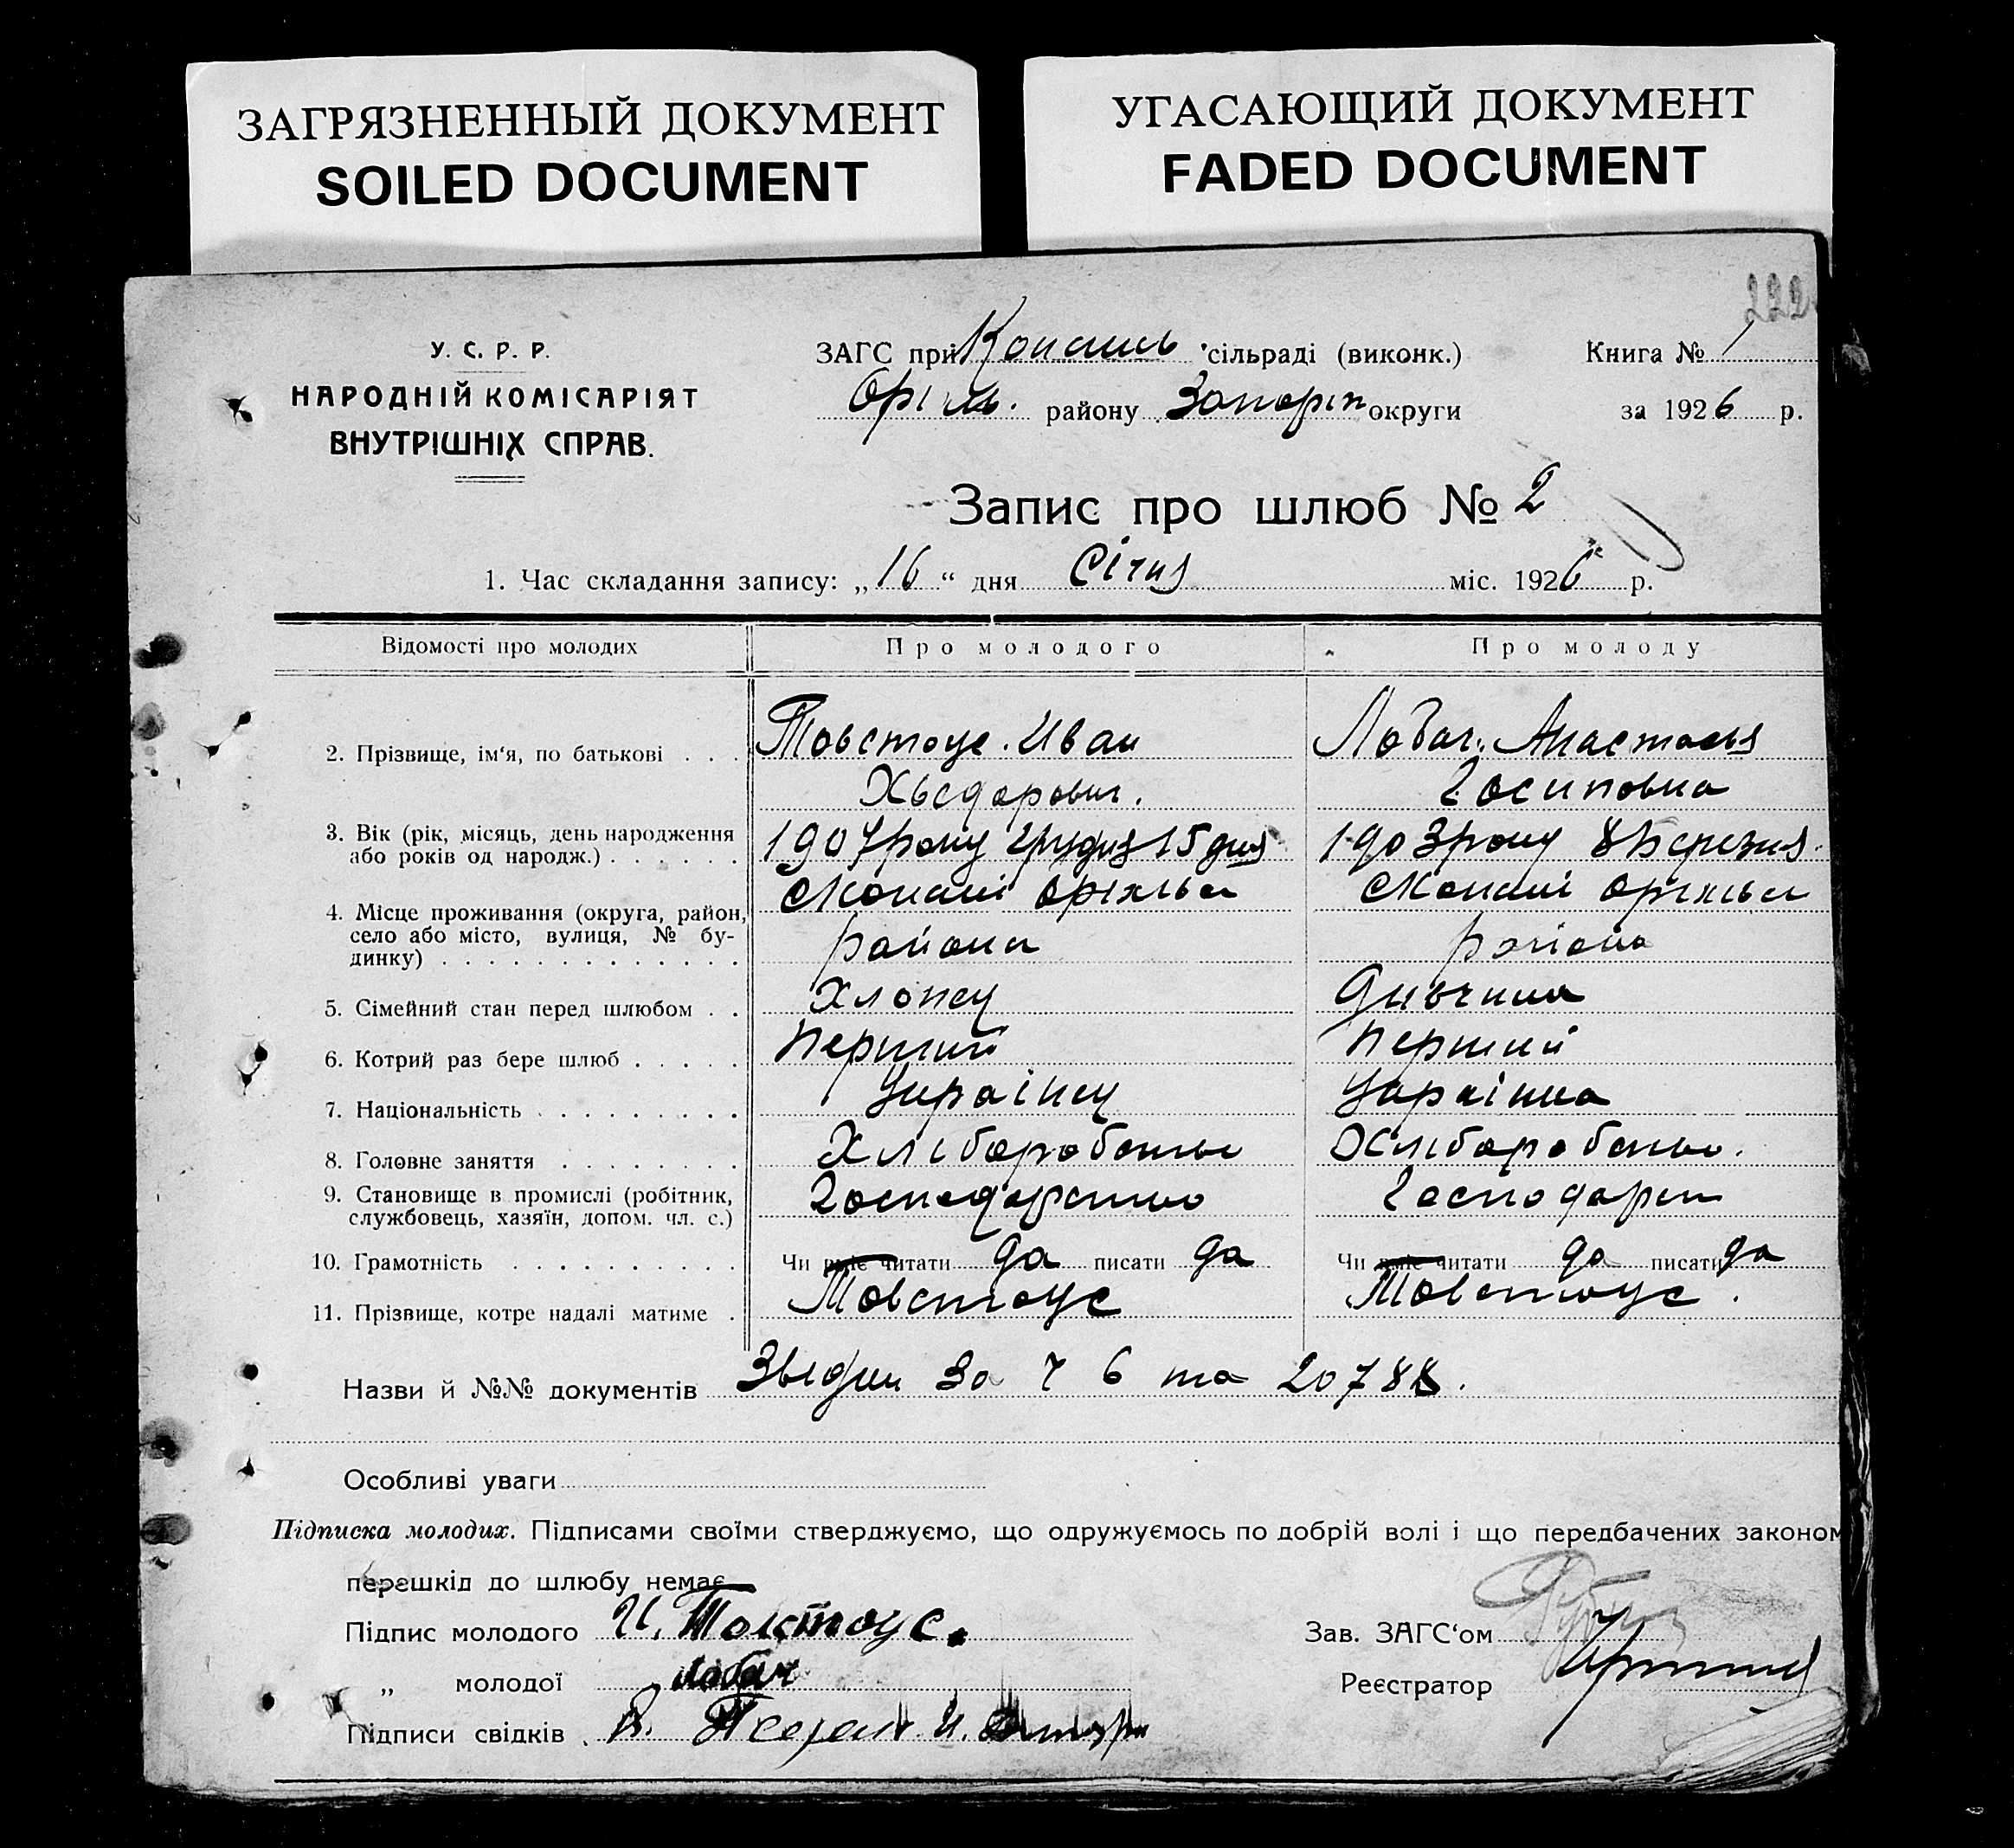 ЗАГРЯЗНЕННЫЙ ДОКУМЕНТ
SOILED DOCUMENT
УГАСАЮЩИЙ ДОКУМЕНТ
FADED DOCUMENT
222
У. С. Р. Р.
НАРОДНІЙ КОМІСАРІЯТ
ВНУТРІШНІХ СПРАВ.
ЗАГС при сільраді (виконк.) Книга № 1
району Запоріж округи за 1926 р.
Запис про шлюб № 2
1. Час складання запису: „16“ дня Січня міс. 1926 р.
Відомості про молодих Про молодого Про молоду
2. Прізвище, ім'я, по батькові . . . Товстоус Иван Лобач Анастасья
Хведорович. Госиповна
3. Вік (рік, місяць, день народження
або років од народж.) . . . . . . 1907 року Грудня 15 дня 1903 року 8 Березня.
4. Місце проживання (округа, район,
село або місто, вулиця, № бу-
динку) . . . . . . . . . . . . . с Копані Оріхівськ с Копані Оріхівськ
района района
5. Сімейний стан перед шлюбом . . Хлопец Дивчина
6. Котрий раз бере шлюб . . . . . Перший Перший
7. Національність . . . . . . . . . Украінец Украінка
8. Головне заняття . . . . . . . . Хліборобство Хліборобство.
9. Становище в промислі (робітник,
службовець, хазяїн, допом. чл. с.) Господарство Господарст
10. Грамотність . . . . . . . . . . Чи вміє читати да писати да Чи вміє читати да писати да
11. Прізвище, котре надалі матиме . Товстоус Товстоус.
Назви й №№ документів за 6 та 20788.
Особливі уваги
Підписка молодих. Підписами своїми стверджуємо, що одружуємось по добрій волі і що передбачених законом
перешкід до шлюбу немає
Підпис молодого И. Товстоус. Зав. ЗАГС'ом
„ молодої Лобач Реєстратор
Підписи свідків